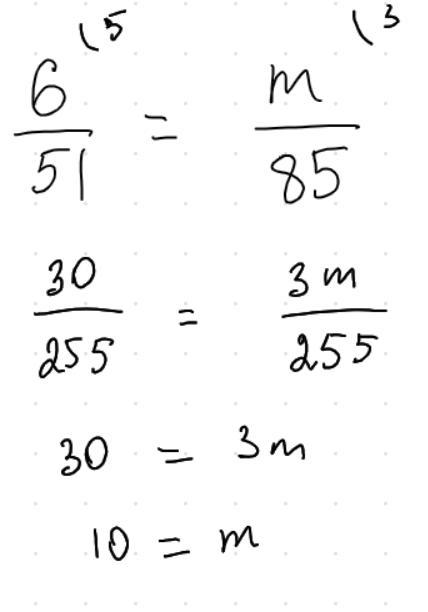 6/51 (5 = m/85 (3
30/255 = 3m/255
30 = 3m
10 = m